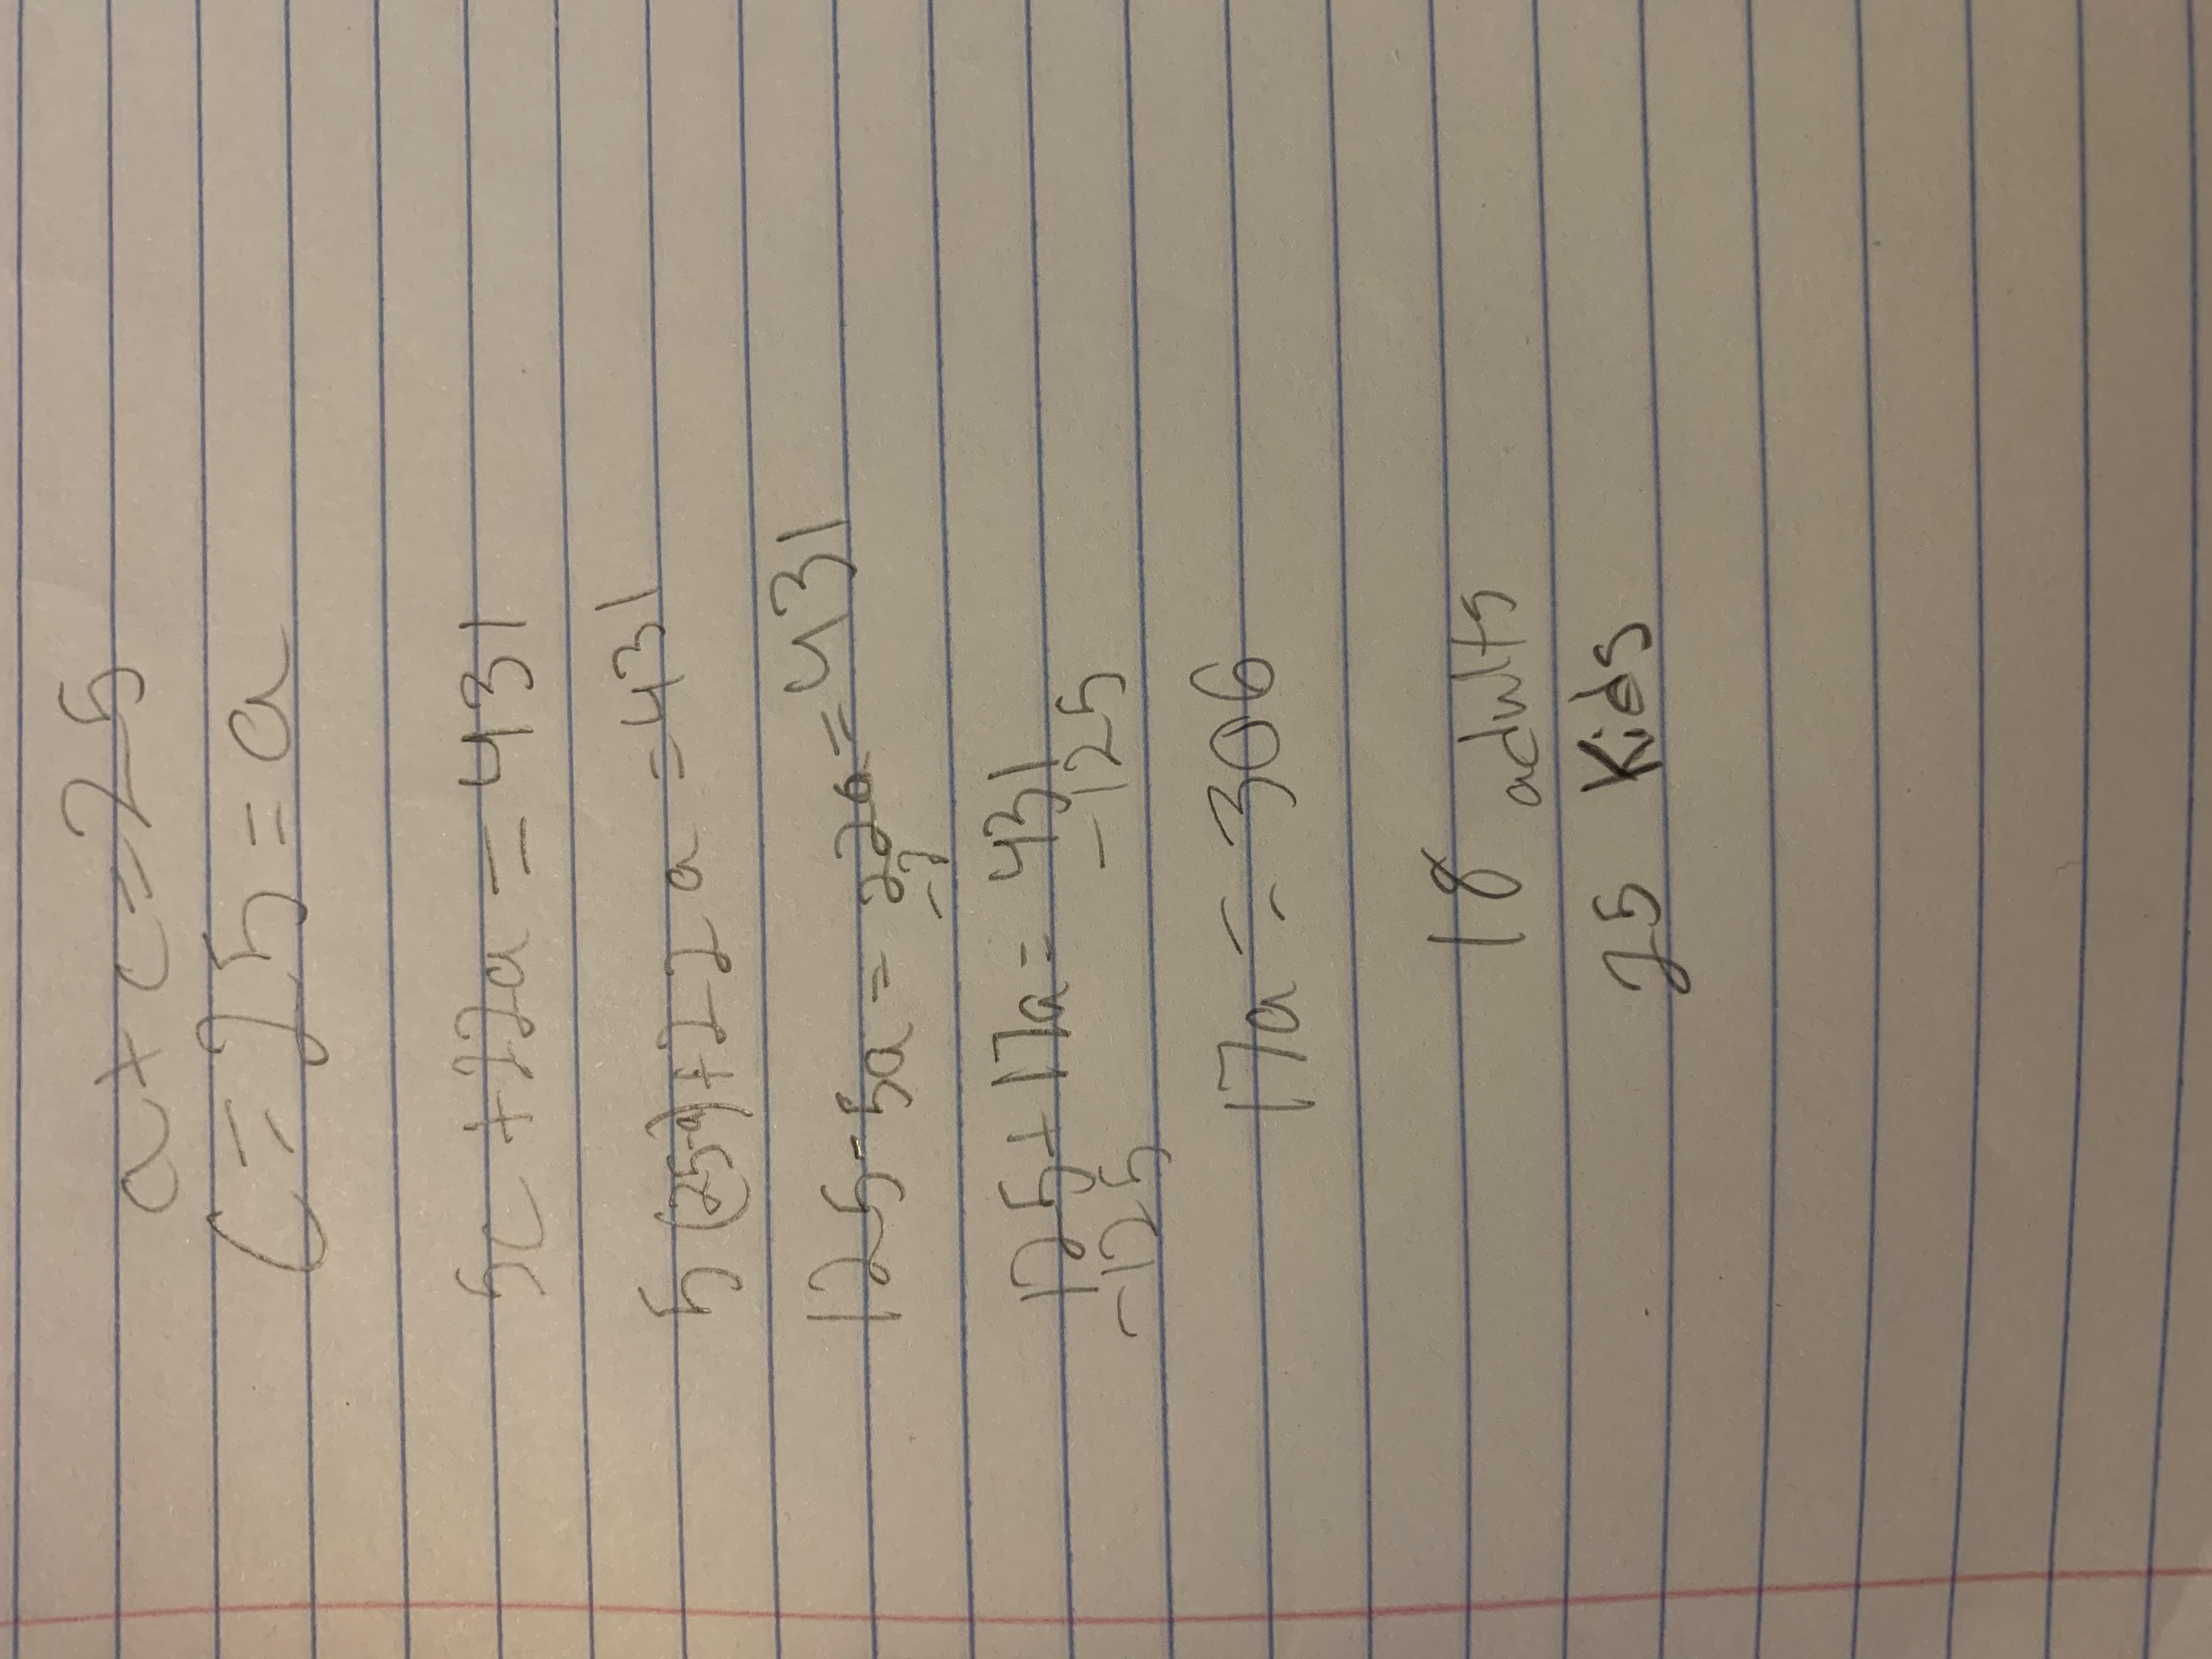 a+c=25
c=25=a
5c+22a=431
5(25-a)+22a=431
125-5a=22a=431
125+17a=431
-125 -125
17a=306
18 adults
25 Kids